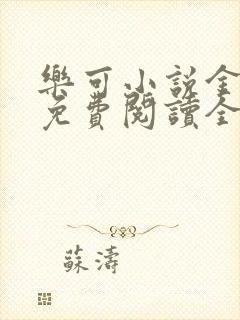 樂可小說全
免費閱讀全
蘇濤